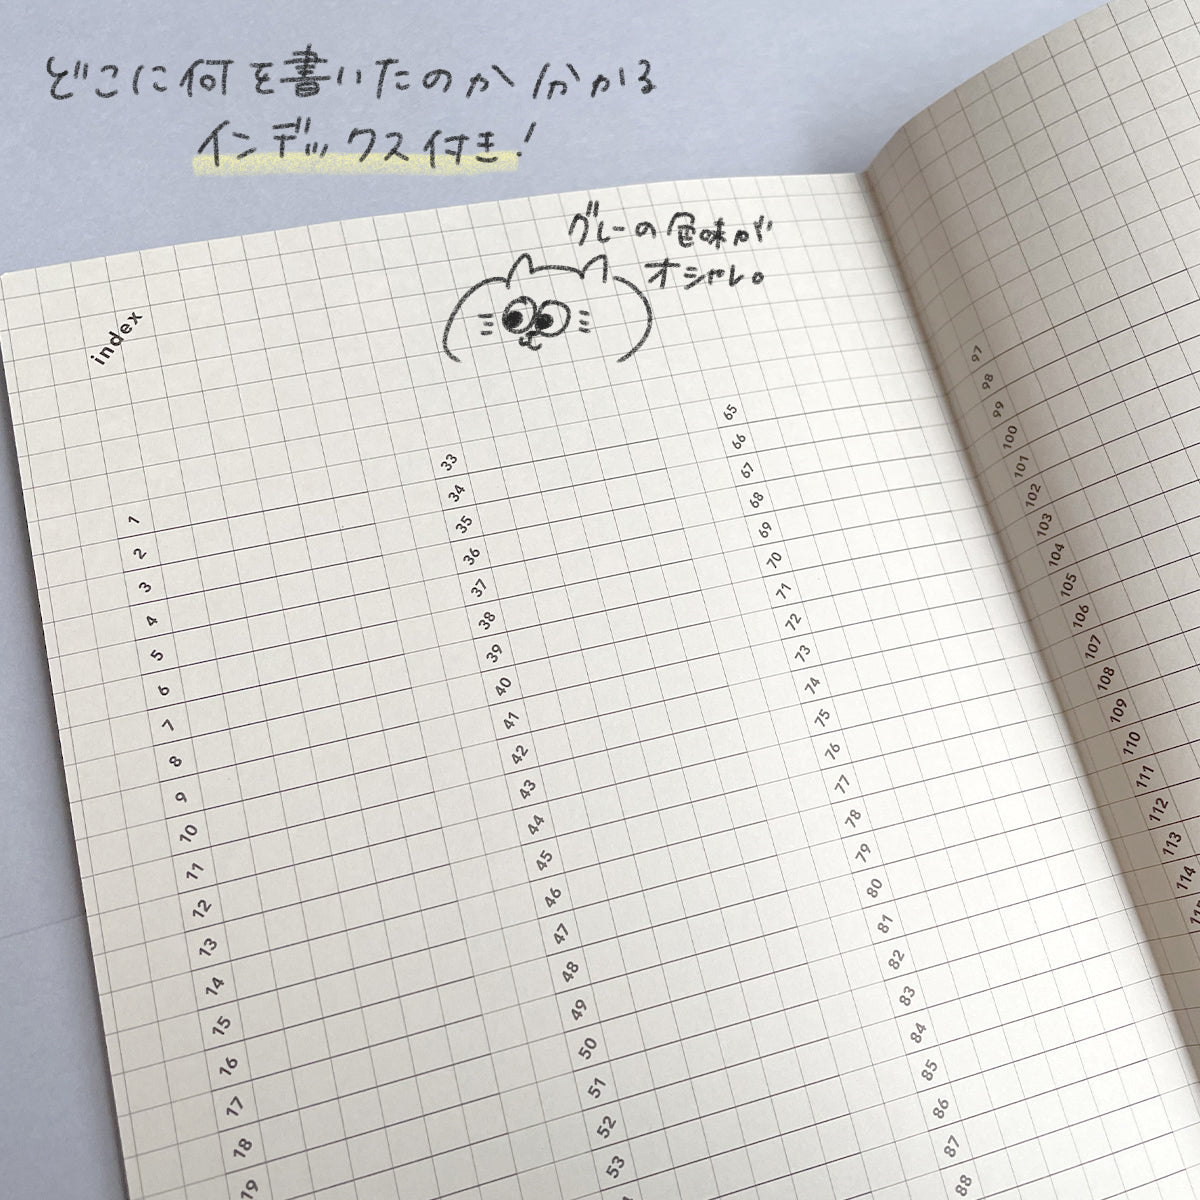 どこに何を書いたのか分かる
インデックス付き!
グレーの色味が
オシャレ。
index
1
2
3
4
5
6
7
8
9
10
11
12
13
14
15
16
17
18
19
33
34
35
36
37
38
39
40
41
42
43
44
45
46
47
48
49
50
51
52
53
65
66
67
68
69
70
71
72
73
74
75
76
77
78
79
80
81
82
83
84
85
86
87
88
97
98
99
100
101
102
103
104
105
106
107
108
109
110
111
112
113
114